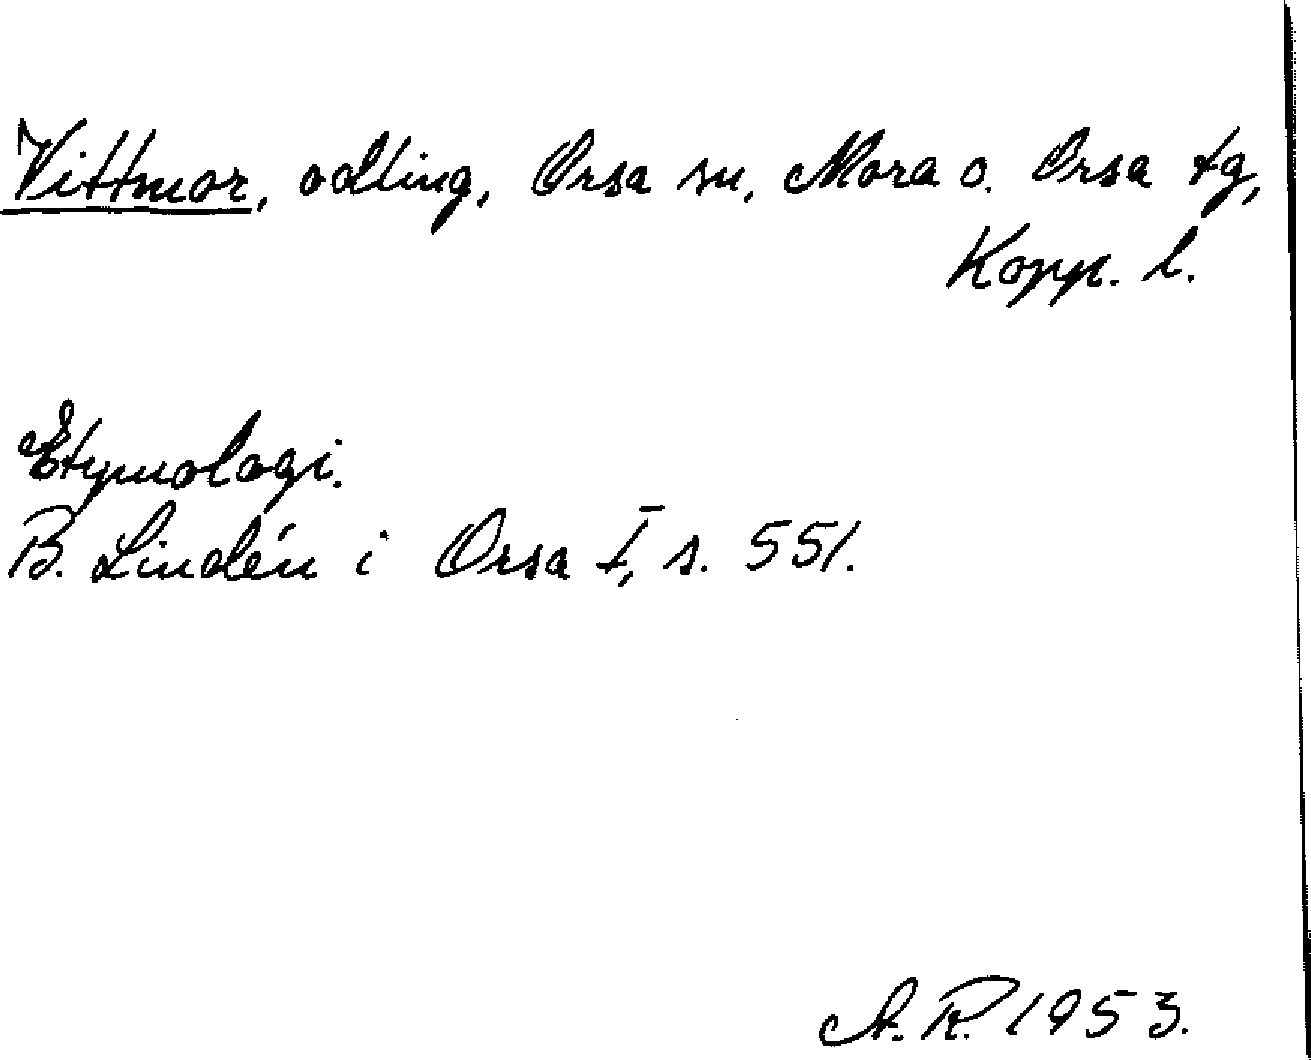 Vittmor, odling, Orsa sn, Mora o. Orsa tg,
Kopp. l.
Etymologi.
B. Lindén i Orsa I, s. 551.
A. R. 1953.